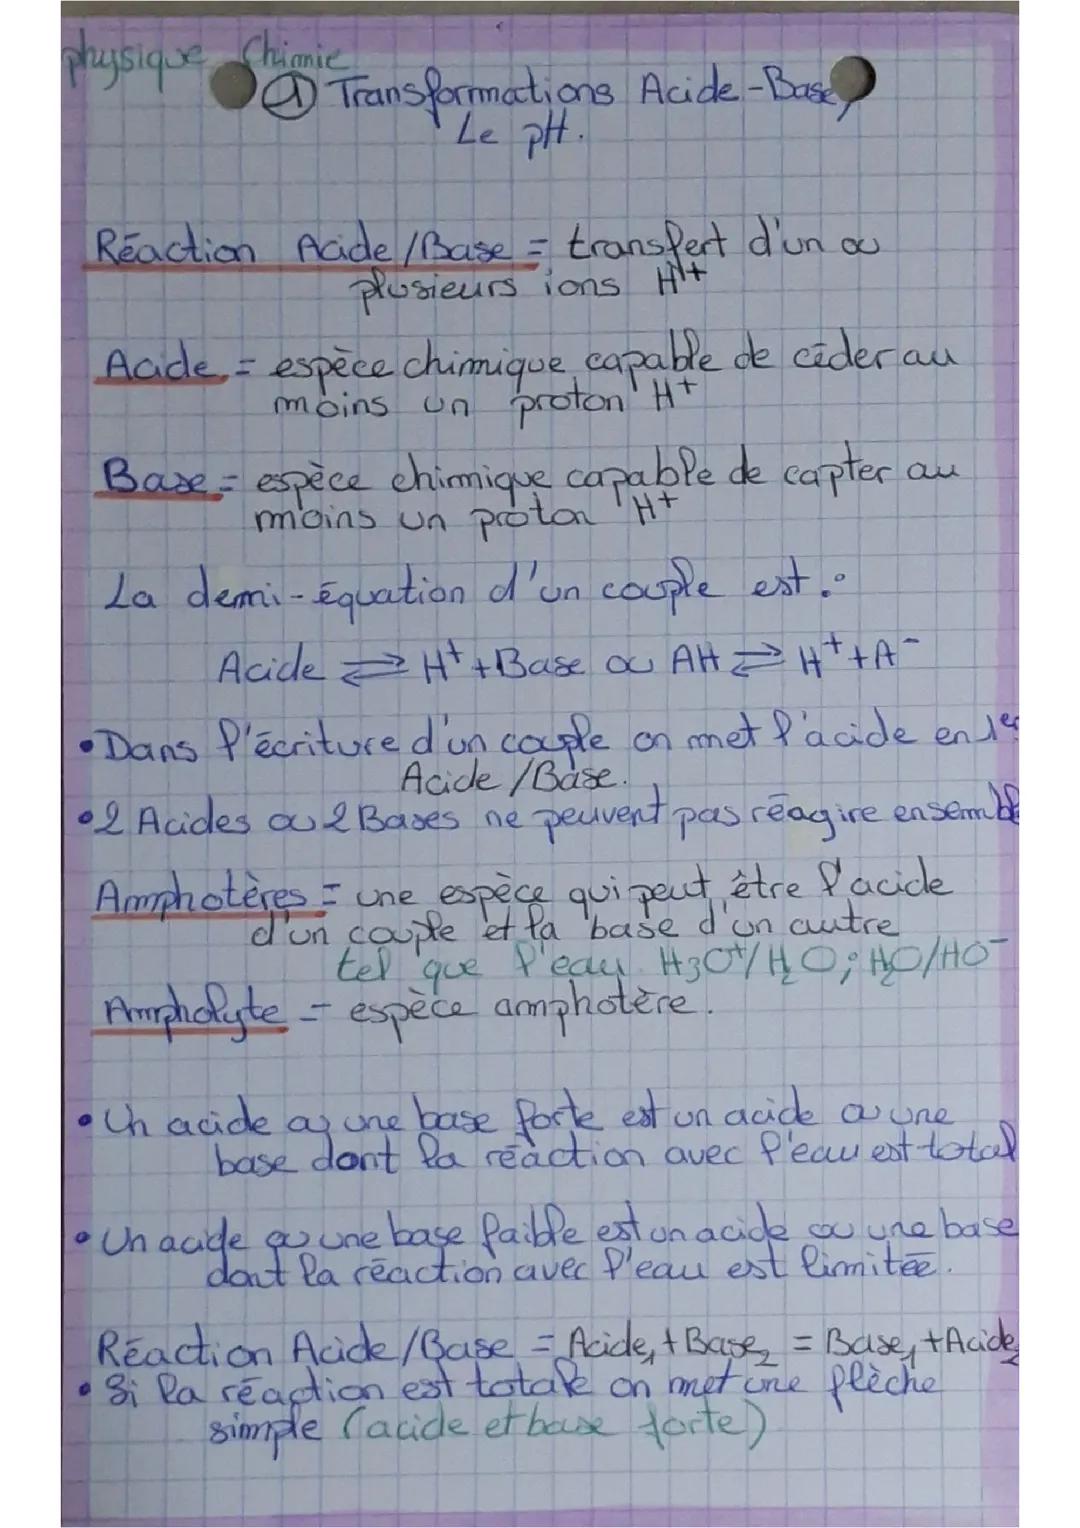 physique Chimie
① Transformations Acide-Base,
Le pH.
Réaction Acide/Base = transfert d'un ou
plusieurs ions H+
Acide = espèce chimique capable de céder au
moins un proton H+
Base = espèce chimique capable de capter au
moins un proton H+
La demi-équation d'un couple est :
Acide ⇌ H⁺ + Base ou AH ⇌ H⁺ + A⁻
• Dans l'écriture d'un couple on met l'acide en 1er
Acide /Base.
• 2 Acides ou 2 Bases ne peuvent pas réagire ensemble
Amphotères = une espèce qui peut être l'acide
d'un couple et la base d'un autre
tel que l'eau H₃O⁺/H₂O ; H₂O/HO⁻
Ampholyte = espèce amphotère.
• Un acide ou une base forte est un acide ou une
base dont la réaction avec l'eau est total
• Un acide ou une base faible est un acide ou une base
dont la réaction avec l'eau est limitée.
Réaction Acide/Base = Acide₁ + Base₂ = Base₁ + Acide₂
• Si la réaction est totale on met une flèche
simple (acide et base forte)